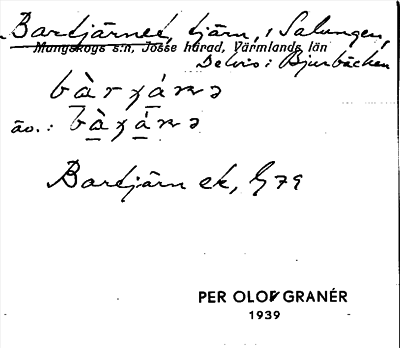 Bartjärnet, tjärn, i Salungen,
Mungskogs s:n, Jösse härad, Värmlands län
Delvis: Bjurbäcken
bàrχánə
äv.: bàχánə
Bartjärn ek, G79
PER OLOF GRANÉR
1939